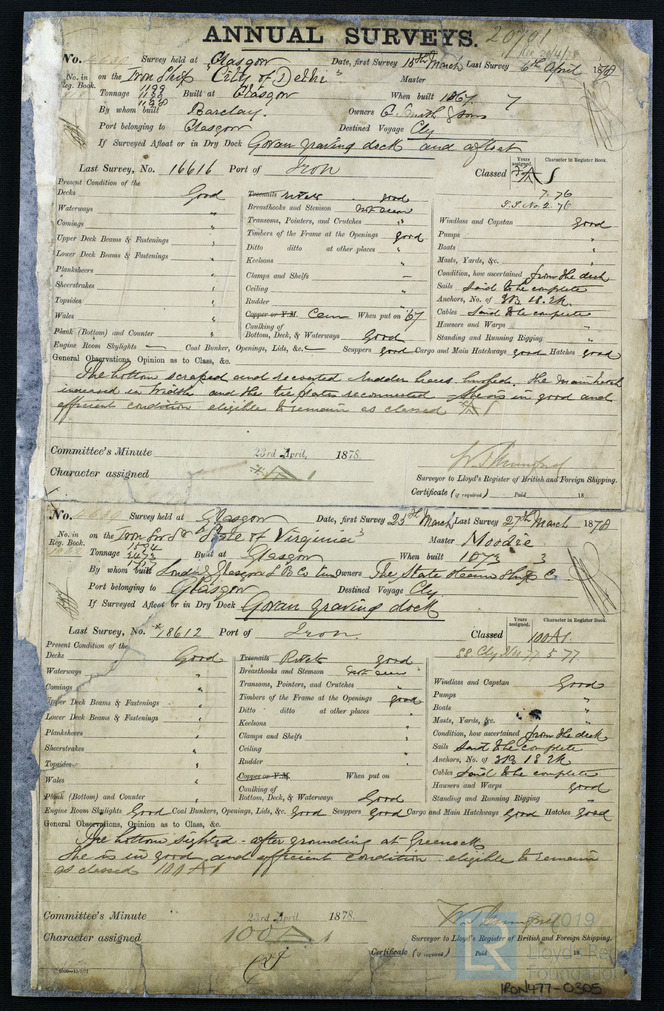 ANNUAL SURVEYS.
20791
No. Survey held at Glasgow Date, first Survey 18th March Last Survey 6th April 1878
No. in Reg. Book. on the Iron Ship City of Delhi Master
Tonnage 1199 Built at Glasgow When built 1867 7
By whom built Barclay. Owners G. Smith & Sons
Port belonging to Glasgow Destined Voyage Cly
If Surveyed Afloat or in Dry Dock Govan graving dock and afloat
Last Survey, No. 16616 Port of Iron Classed Years assigned. Character in Register Book.
7.76
Present Condition of the
Decks Good
Waterways "
Comings "
Upper Deck Beams & Fastenings "
Lower Deck Beams & Fastenings "
Planksheers "
Sheerstrakes "
Topsides "
Wales "
Plank (Bottom) and Counter "
Treenails rivets good
Breasthooks and Stemson not seen
Transoms, Pointers, and Crutches "
Timbers of the Frame at the Openings good
Ditto ditto at other places "
Keelsons "
Clamps and Shelfs —
Ceiling "
Rudder "
Copper or Y.M. Cem When put on '67
Caulking of Bottom, Deck, & Waterways Good
Windlass and Capstan good
Pumps "
Boats "
Masts, Yards, &c. "
Condition, how ascertained from the deck
Sails Said to be complete
Anchors, No. of 3B. 1S. 2K.
Cables Said to be complete
Hawsers and Warps "
Standing and Running Rigging "
Engine Room Skylights — Coal Bunker, Openings, Lids, &c. — Scuppers good Cargo and Main Hatchways good Hatches good
General Observations, Opinion as to Class, &c.
The bottom scraped and recoated Rudder braces bushed. The main hatch
increased in width and the tie plates reconnected She is in good and
efficient condition eligible to remain as classed A 1
Committee's Minute 23rd April, 1878.
Character assigned A 1
Surveyor to Lloyd's Register of British and Foreign Shipping.
Certificate (if required) Paid 18
No. Survey held at Glasgow Date, first Survey 25th March Last Survey 27th March 1878
No. in Reg. Book. on the Iron Sr State of Virginia Master Moodie
Tonnage 2473 Built at Glasgow When built 1873 3
By whom built London & Glasgow S B Co Owners The State Steam Ship C.
Port belonging to Glasgow Destined Voyage Cly
If Surveyed Afloat or in Dry Dock Govan graving dock
Last Survey, No. 18612 Port of Iron. Classed Years assigned. Character in Register Book.
100A1.
5.77
Present Condition of the
Decks Good
Waterways "
Comings "
Upper Deck Beams & Fastenings "
Lower Deck Beams & Fastenings "
Planksheers "
Sheerstrakes "
Topsides "
Wales "
Plank (Bottom) and Counter "
Treenails Rivets good
Breasthooks and Stemson not seen
Transoms, Pointers, and Crutches "
Timbers of the Frame at the Openings good
Ditto ditto at other places "
Keelsons "
Clamps and Shelfs "
Ceiling "
Rudder "
Copper or Y.M. When put on
Caulking of Bottom, Deck, & Waterways Good
Windlass and Capstan Good
Pumps "
Boats "
Masts, Yards, &c. "
Condition, how ascertained from the deck
Sails Said to be complete
Anchors, No. of 3B. 1S. 2K
Cables Said to be complete
Hawsers and Warps good
Standing and Running Rigging "
Engine Room Skylights Good Coal Bunkers, Openings, Lids, &c. Good Scuppers good Cargo and Main Hatchways Good Hatches good
General Observations, Opinion as to Class, &c.
The bottom sighted - after grounding at Greenock
She is in good and efficient condition - eligible to remain
as classed 100 A 1
Committee's Minute 23rd April 1878.
Character assigned 100 A 1
Surveyor to Lloyd's Register of British and Foreign Shipping.
Certificate (if required) Paid 18
LR
2019
Lloyd's Register
Foundation
IRON477-0305